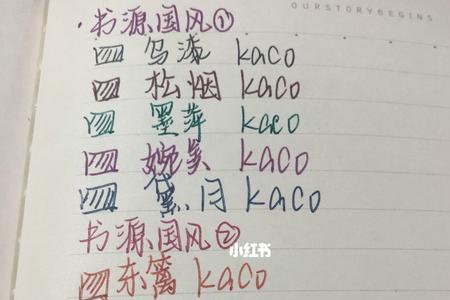 OURSTORYBEGINS
·书源国风①
乌漆 kaco
松烟 kaco
墨萍 kaco
婉美 kaco
黛月 kaco
小红书
书源国风②
东篱 kaco